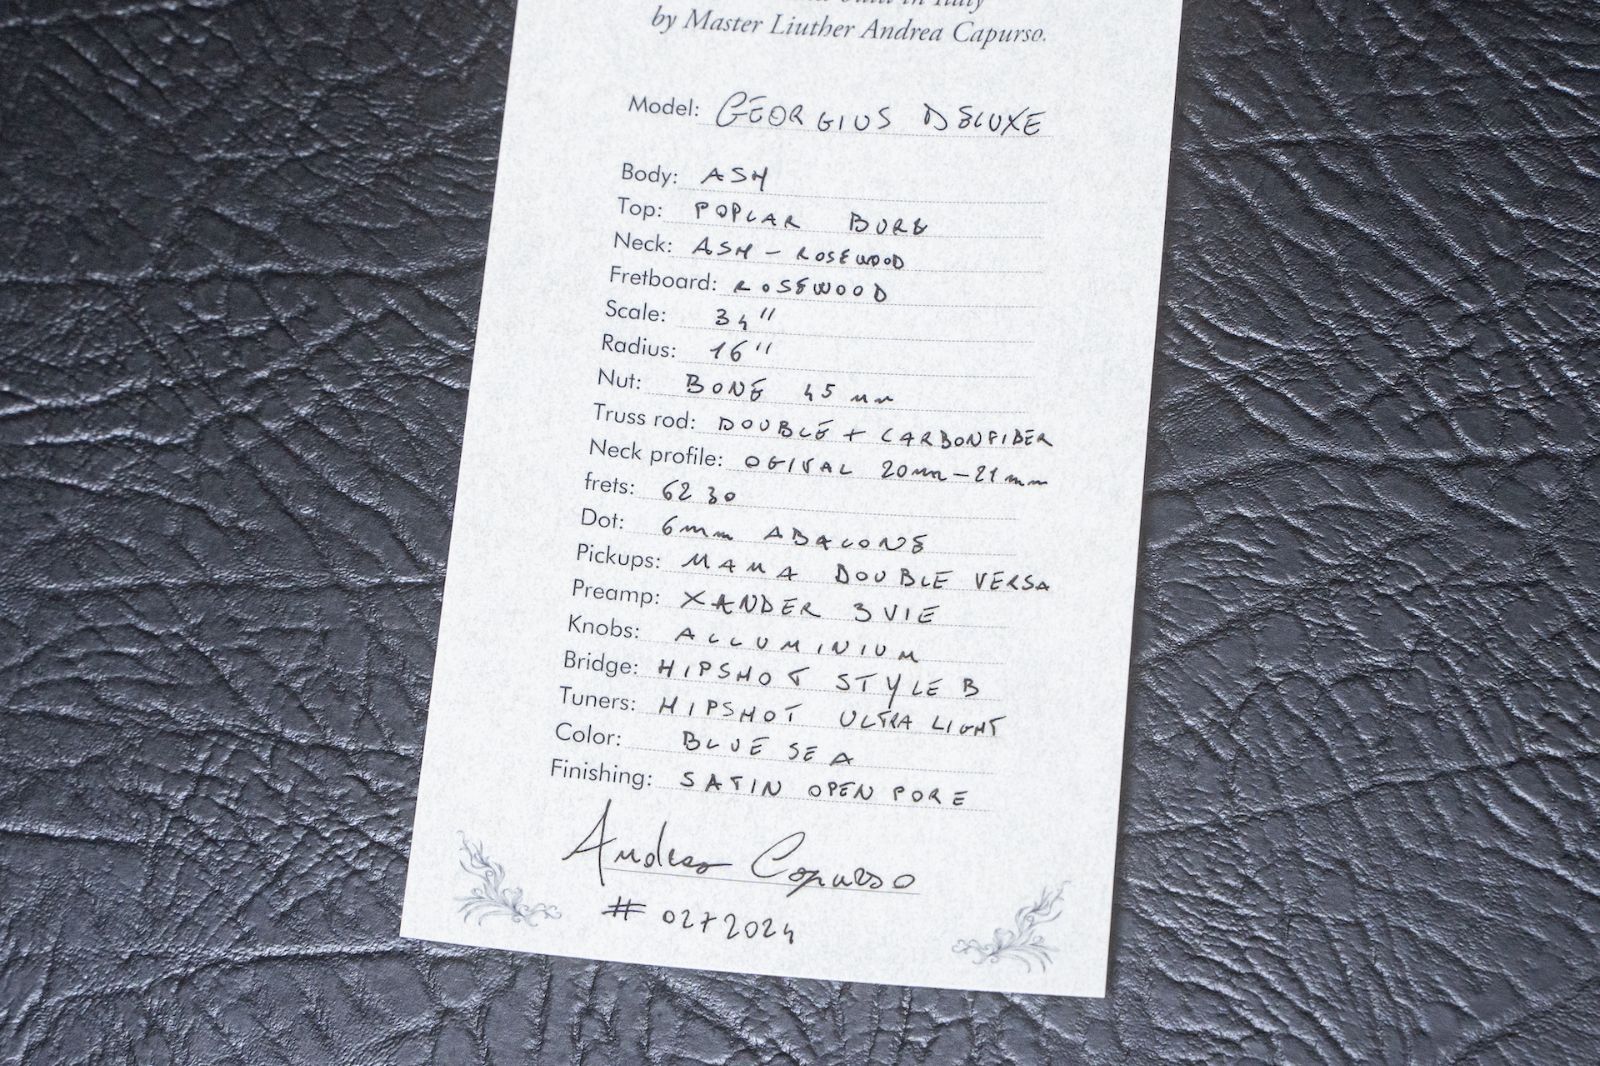 in Italy
by Master Liuther Andrea Capurso.
Model: GEORGIUS DELUXE
Body: ASH
Top: POPLAR BURL
Neck: ASH - ROSEWOOD
Fretboard: ROSEWOOD
Scale: 34"
Radius: 16"
Nut: BONE 45 mm
Truss rod: DOUBLE + CARBONFIBER
Neck profile: OGIVAL 20mm-21mm
frets: 6230
Dot: 6mm ABALONE
Pickups: MAMA DOUBLE VERSA
Preamp: XANDER 3VIE
Knobs: ALLUMINIUM
Bridge: HIPSHOT STYLE B
Tuners: HIPSHOT ULTRA LIGHT
Color: BLUE SEA
Finishing: SATIN OPEN PORE
Andrea Capurso
# 0272024